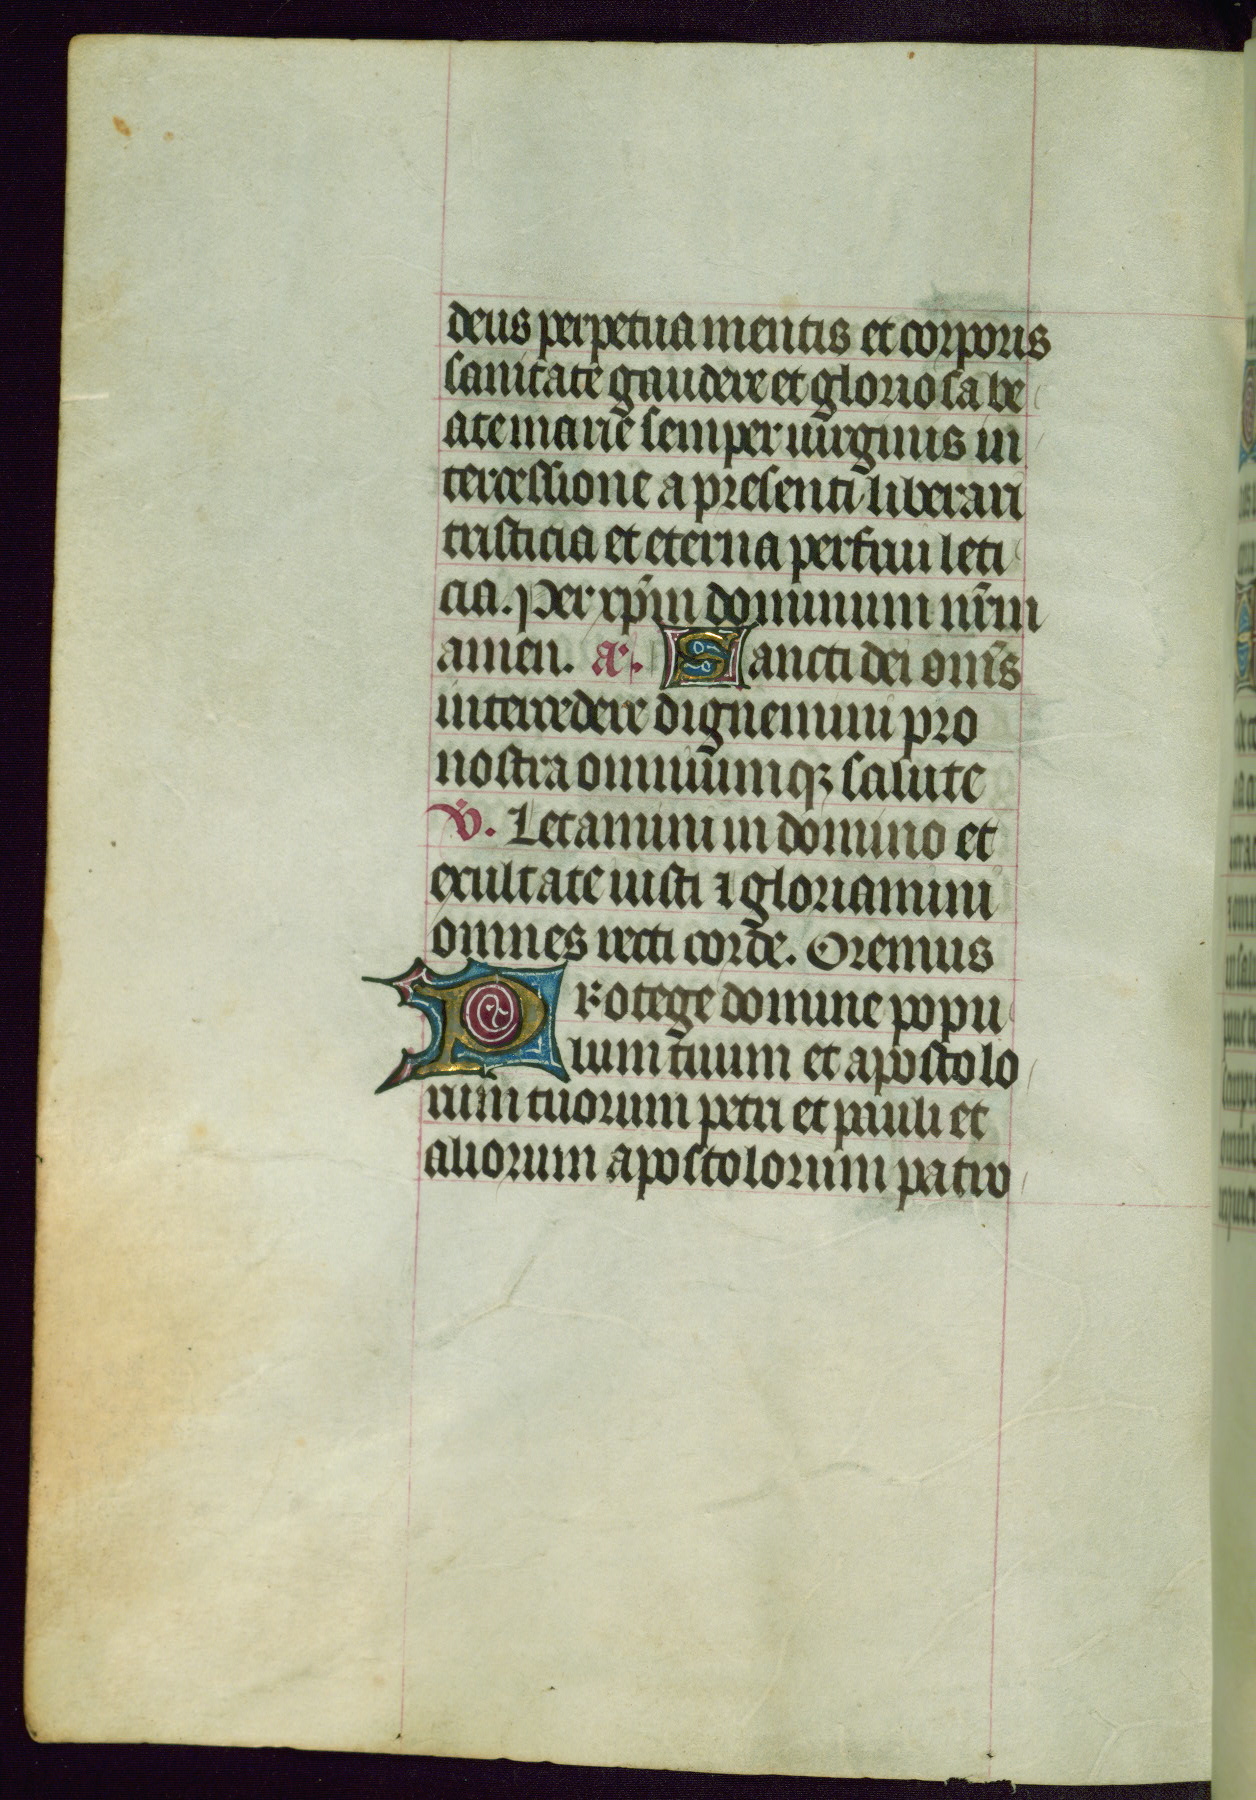 deus perpetua mentis et corporis
sanitate gaudere et gloriosa be
ate marie semper uirginis in
tercessione a presenti liberari
tristicia et eterna perfrui leti
cia. Per xp̄m dominum nr̄m
amen. a͞. Sancti dei om̄s
intercedere dignemini pro
nostra omniumqꝫ salute
V̇. Letamini in domino et
exultate iusti ⁊ gloriamini
omnes recti corde. Oremus
Protege domine popu
lum tuum et apostolo
rum tuorum petri et pauli et
aliorum apostolorum patro